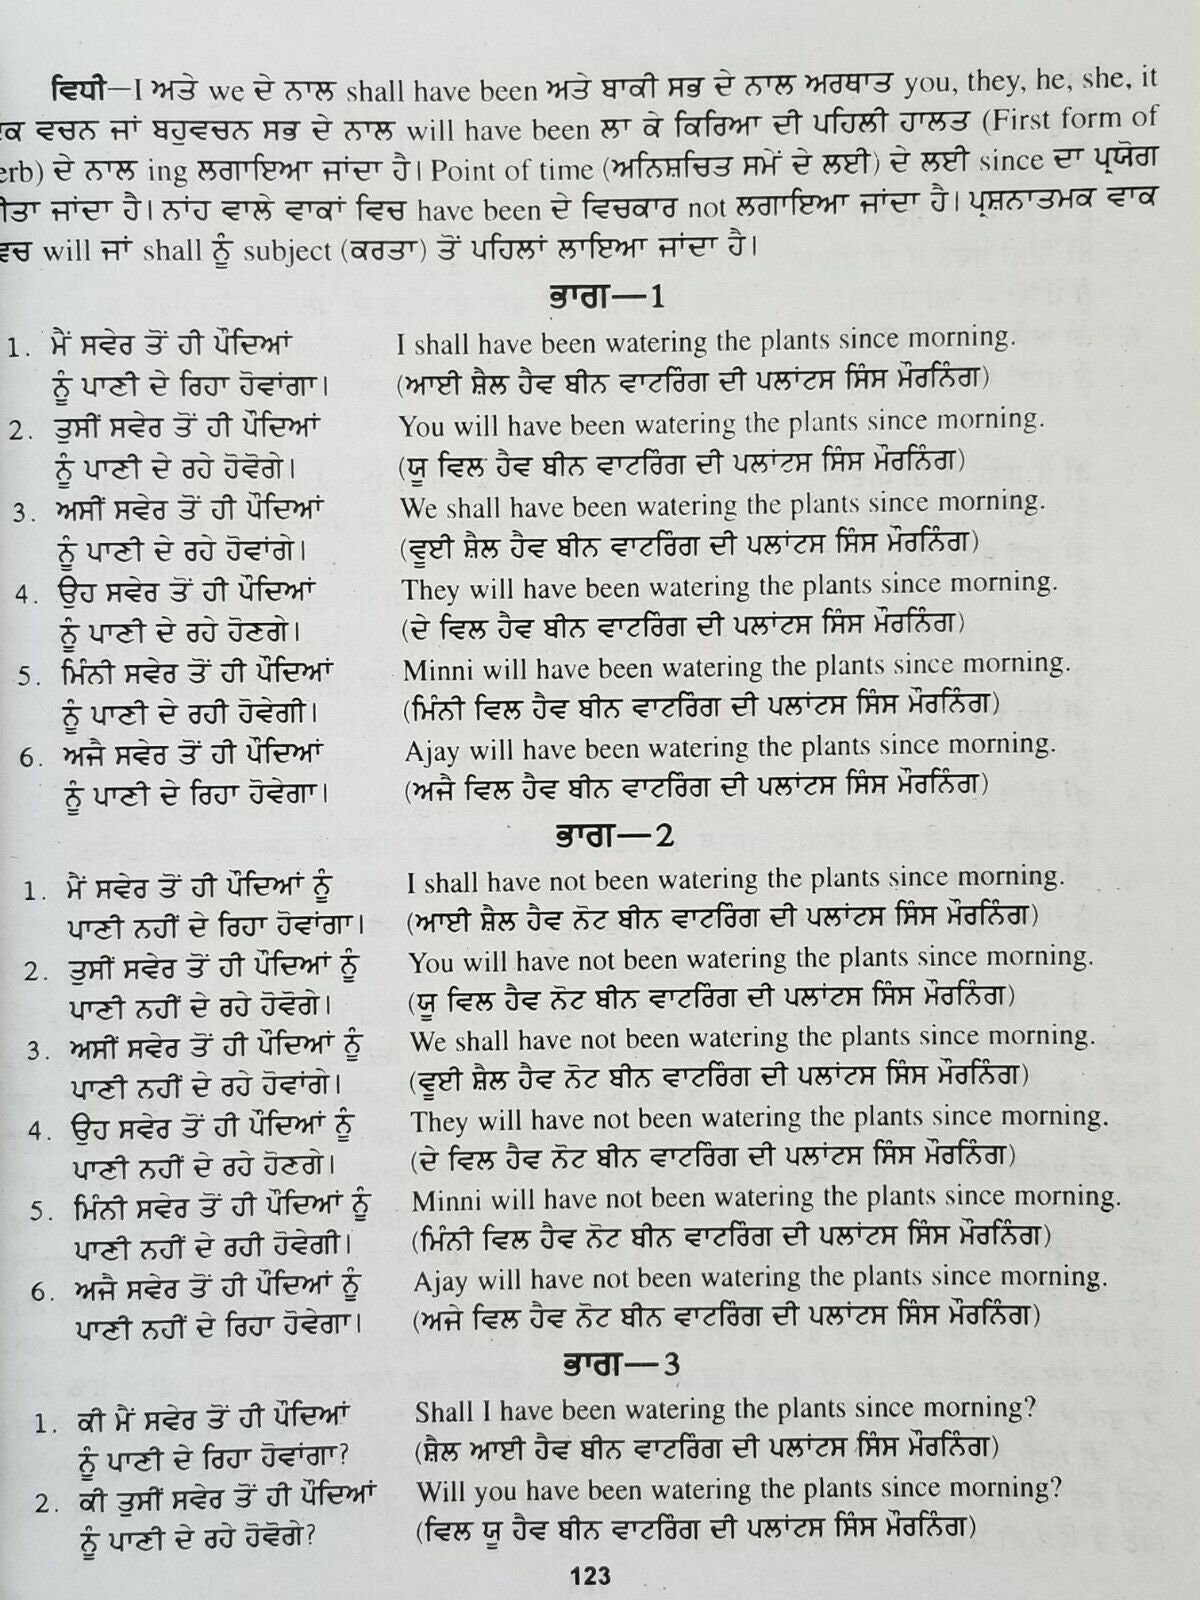 ਵਿਧੀ—I ਅਤੇ we ਦੇ ਨਾਲ shall have been ਅਤੇ ਬਾਕੀ ਸਭ ਦੇ ਨਾਲ ਅਰਥਾਤ you, they, he, she, it
ਕ ਵਚਨ ਜਾਂ ਬਹੁਵਚਨ ਸਭ ਦੇ ਨਾਲ will have been ਲਾ ਕੇ ਕਿਰਿਆ ਦੀ ਪਹਿਲੀ ਹਾਲਤ (First form of
erb) ਦੇ ਨਾਲ ing ਲਗਾਇਆ ਜਾਂਦਾ ਹੈ। Point of time (ਅਨਿਸ਼ਚਿਤ ਸਮੇਂ ਦੇ ਲਈ) ਦੇ ਲਈ since ਦਾ ਪ੍ਰਯੋਗ
ੀਤਾ ਜਾਂਦਾ ਹੈ। ਨਾਂਹ ਵਾਲੇ ਵਾਕਾਂ ਵਿਚ have been ਦੇ ਵਿਚਕਾਰ not ਲਗਾਇਆ ਜਾਂਦਾ ਹੈ। ਪ੍ਰਸ਼ਨਾਤਮਕ ਵਾਕ
ਵਚ will ਜਾਂ shall ਨੂੰ subject (ਕਰਤਾ) ਤੋਂ ਪਹਿਲਾਂ ਲਾਇਆ ਜਾਂਦਾ ਹੈ।
ਭਾਗ—1
1. ਮੈਂ ਸਵੇਰ ਤੋਂ ਹੀ ਪੌਦਿਆਂ I shall have been watering the plants since morning.
ਨੂੰ ਪਾਣੀ ਦੇ ਰਿਹਾ ਹੋਵਾਂਗਾ। (ਆਈ ਸ਼ੈਲ ਹੈਵ ਬੀਨ ਵਾਟਰਿੰਗ ਦੀ ਪਲਾਂਟਸ ਸਿੰਸ ਮੌਰਨਿੰਗ)
2. ਤੁਸੀਂ ਸਵੇਰ ਤੋਂ ਹੀ ਪੌਦਿਆਂ You will have been watering the plants since morning.
ਨੂੰ ਪਾਣੀ ਦੇ ਰਹੇ ਹੋਵੋਗੇ। (ਯੂ ਵਿਲ ਹੈਵ ਬੀਨ ਵਾਟਰਿੰਗ ਦੀ ਪਲਾਂਟਸ ਸਿੰਸ ਮੌਰਨਿੰਗ)
3. ਅਸੀਂ ਸਵੇਰ ਤੋਂ ਹੀ ਪੌਦਿਆਂ We shall have been watering the plants since morning.
ਨੂੰ ਪਾਣੀ ਦੇ ਰਹੇ ਹੋਵਾਂਗੇ। (ਵੂਈ ਸ਼ੈਲ ਹੈਵ ਬੀਨ ਵਾਟਰਿੰਗ ਦੀ ਪਲਾਂਟਸ ਸਿੰਸ ਮੌਰਨਿੰਗ)
4. ਉਹ ਸਵੇਰ ਤੋਂ ਹੀ ਪੌਦਿਆਂ They will have been watering the plants since morning.
ਨੂੰ ਪਾਣੀ ਦੇ ਰਹੇ ਹੋਣਗੇ। (ਦੇ ਵਿਲ ਹੈਵ ਬੀਨ ਵਾਟਰਿੰਗ ਦੀ ਪਲਾਂਟਸ ਸਿੰਸ ਮੌਰਨਿੰਗ)
5. ਮਿੰਨੀ ਸਵੇਰ ਤੋਂ ਹੀ ਪੌਦਿਆਂ Minni will have been watering the plants since morning.
ਨੂੰ ਪਾਣੀ ਦੇ ਰਹੀ ਹੋਵੇਗੀ। (ਮਿੰਨੀ ਵਿਲ ਹੈਵ ਬੀਨ ਵਾਟਰਿੰਗ ਦੀ ਪਲਾਂਟਸ ਸਿੰਸ ਮੌਰਨਿੰਗ)
6. ਅਜੈ ਸਵੇਰ ਤੋਂ ਹੀ ਪੌਦਿਆਂ Ajay will have been watering the plants since morning.
ਨੂੰ ਪਾਣੀ ਦੇ ਰਿਹਾ ਹੋਵੇਗਾ। (ਅਜੈ ਵਿਲ ਹੈਵ ਬੀਨ ਵਾਟਰਿੰਗ ਦੀ ਪਲਾਂਟਸ ਸਿੰਸ ਮੌਰਨਿੰਗ)
ਭਾਗ—2
1. ਮੈਂ ਸਵੇਰ ਤੋਂ ਹੀ ਪੌਦਿਆਂ ਨੂੰ I shall have not been watering the plants since morning.
ਪਾਣੀ ਨਹੀਂ ਦੇ ਰਿਹਾ ਹੋਵਾਂਗਾ। (ਆਈ ਸ਼ੈਲ ਹੈਵ ਨੋਟ ਬੀਨ ਵਾਟਰਿੰਗ ਦੀ ਪਲਾਂਟਸ ਸਿੰਸ ਮੌਰਨਿੰਗ)
2. ਤੁਸੀਂ ਸਵੇਰ ਤੋਂ ਹੀ ਪੌਦਿਆਂ ਨੂੰ You will have not been watering the plants since morning.
ਪਾਣੀ ਨਹੀਂ ਦੇ ਰਹੇ ਹੋਵੋਗੇ। (ਯੂ ਵਿਲ ਹੈਵ ਨੋਟ ਬੀਨ ਵਾਟਰਿੰਗ ਦੀ ਪਲਾਂਟਸ ਸਿੰਸ ਮੌਰਨਿੰਗ)
3. ਅਸੀਂ ਸਵੇਰ ਤੋਂ ਹੀ ਪੌਦਿਆਂ ਨੂੰ We shall have not been watering the plants since morning.
ਪਾਣੀ ਨਹੀਂ ਦੇ ਰਹੇ ਹੋਵਾਂਗੇ। (ਵੂਈ ਸ਼ੈਲ ਹੈਵ ਨੋਟ ਬੀਨ ਵਾਟਰਿੰਗ ਦੀ ਪਲਾਂਟਸ ਸਿੰਸ ਮੌਰਨਿੰਗ)
4. ਉਹ ਸਵੇਰ ਤੋਂ ਹੀ ਪੌਦਿਆਂ ਨੂੰ They will have not been watering the plants since morning.
ਪਾਣੀ ਨਹੀਂ ਦੇ ਰਹੇ ਹੋਣਗੇ। (ਦੇ ਵਿਲ ਹੈਵ ਨੋਟ ਬੀਨ ਵਾਟਰਿੰਗ ਦੀ ਪਲਾਂਟਸ ਸਿੰਸ ਮੌਰਨਿੰਗ)
5. ਮਿੰਨੀ ਸਵੇਰ ਤੋਂ ਹੀ ਪੌਦਿਆਂ ਨੂੰ Minni will have not been watering the plants since morning.
ਪਾਣੀ ਨਹੀਂ ਦੇ ਰਹੀ ਹੋਵੇਗੀ। (ਮਿੰਨੀ ਵਿਲ ਹੈਵ ਨੋਟ ਬੀਨ ਵਾਟਰਿੰਗ ਦੀ ਪਲਾਂਟਸ ਸਿੰਸ ਮੌਰਨਿੰਗ)
6. ਅਜੈ ਸਵੇਰ ਤੋਂ ਹੀ ਪੌਦਿਆਂ ਨੂੰ Ajay will have not been watering the plants since morning.
ਪਾਣੀ ਨਹੀਂ ਦੇ ਰਿਹਾ ਹੋਵੇਗਾ। (ਅਜੇ ਵਿਲ ਹੈਵ ਨੋਟ ਬੀਨ ਵਾਟਰਿੰਗ ਦੀ ਪਲਾਂਟਸ ਸਿੰਸ ਮੌਰਨਿੰਗ)
ਭਾਗ—3
1. ਕੀ ਮੈਂ ਸਵੇਰ ਤੋਂ ਹੀ ਪੌਦਿਆਂ Shall I have been watering the plants since morning?
ਨੂੰ ਪਾਣੀ ਦੇ ਰਿਹਾ ਹੋਵਾਂਗਾ? (ਸ਼ੈਲ ਆਈ ਹੈਵ ਬੀਨ ਵਾਟਰਿੰਗ ਦੀ ਪਲਾਂਟਸ ਸਿੰਸ ਮੌਰਨਿੰਗ)
2. ਕੀ ਤੁਸੀਂ ਸਵੇਰ ਤੋਂ ਹੀ ਪੌਦਿਆਂ Will you have been watering the plants since morning?
ਨੂੰ ਪਾਣੀ ਦੇ ਰਹੇ ਹੋਵੋਗੇ? (ਵਿਲ ਯੂ ਹੈਵ ਬੀਨ ਵਾਟਰਿੰਗ ਦੀ ਪਲਾਂਟਸ ਸਿੰਸ ਮੌਰਨਿੰਗ)
123